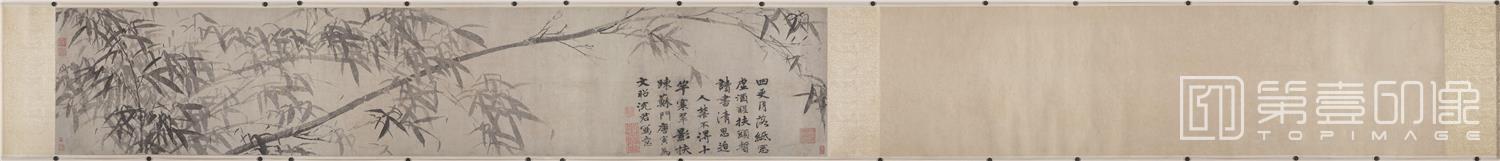 四更月落紙窓
虛酒醒扶頭暫
讀書清思逼
人禁不得十
竿寒翠影扶
踈蘇門唐寅為
文昭沈君寫意
第壹印像
TOPIMAGE